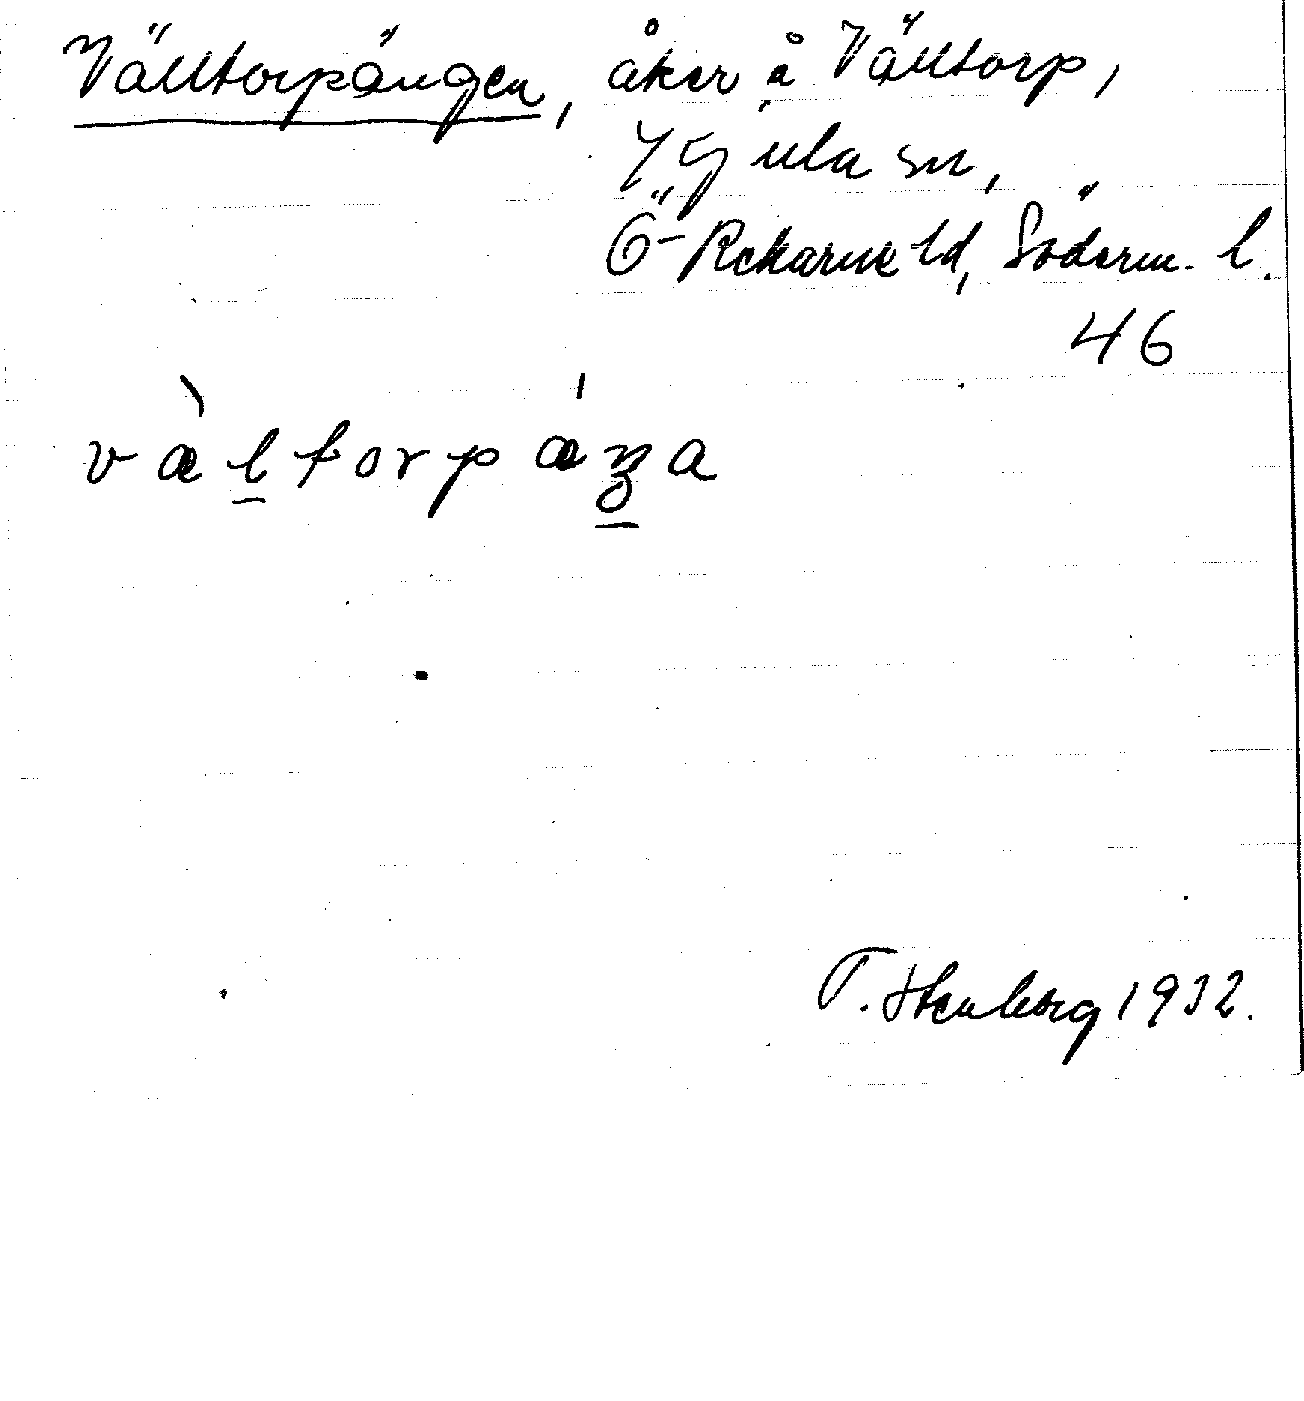 Välltorpängen, åker å Välltorp,
Gjula sn,
Ö-Rekarne hd, Söderm. l.
46
vältorpäŋa
T. Stenborg 1932.